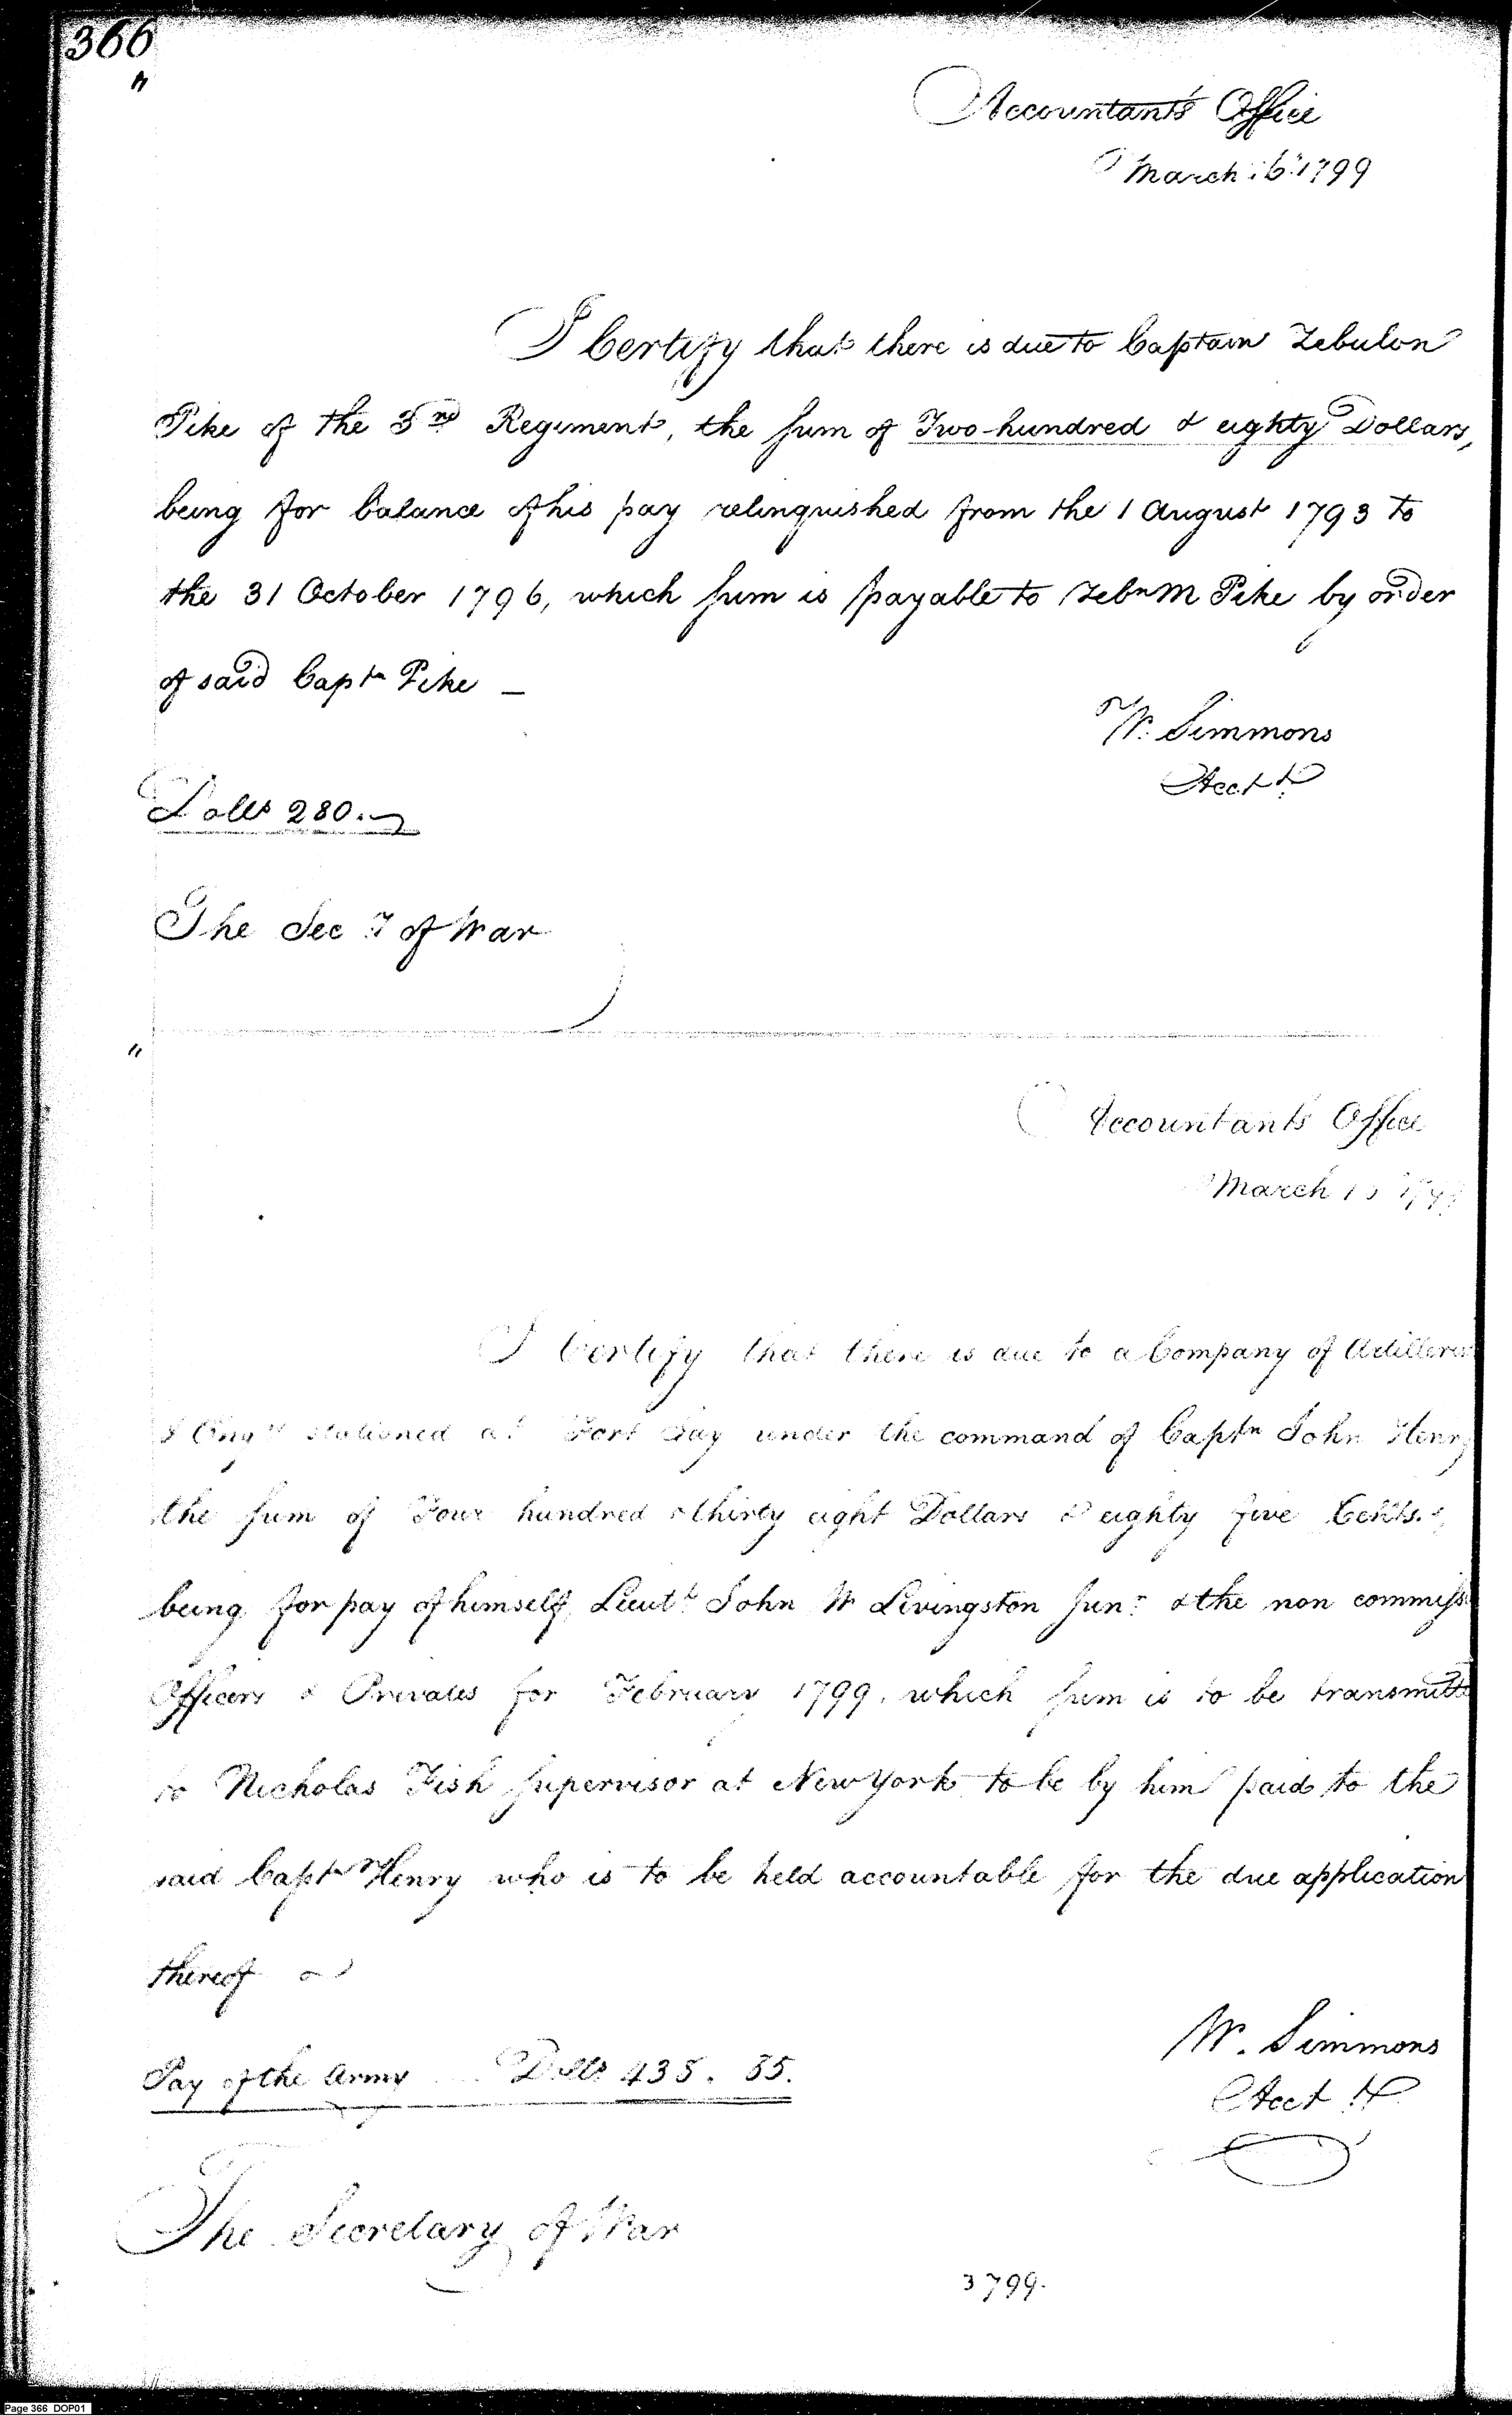 366
"
Accountant's Office
March 16. 1799
I Certify that there is due to Captain Zebulon
Pike of the 3rd Regiment, the sum of Two hundred & eighty Dollars,
being for balance of his pay relinquished from the 1 August 1793 to
the 31 October 1796, which sum is payable to Zebn M Pike by order
of said Captn Pike —
W. Simmons
Acctt
Dolls 280.
The Secy of War
"
Accountants Office
March 1799
I Certify that there is due to a Company of Artillerist
& Engrs stationed at Fort Jay under the command of Captn John Henry
the sum of Four hundred & thirty eight Dollars & eighty five Cents.
being for pay of himself, Lieutt John W Livingston Junr & the non commissd
Officers & Privates for February 1799, which sum is to be transmitted
to Nicholas Fish Supervisor at New York to be by him paid to the
said Captn Henry who is to be held accountable for the due application
thereof
W. Simmons
Acctt
Pay of the Army Dolls 438. 85.
The Secretary of War
3799.
Page 366 DOP01